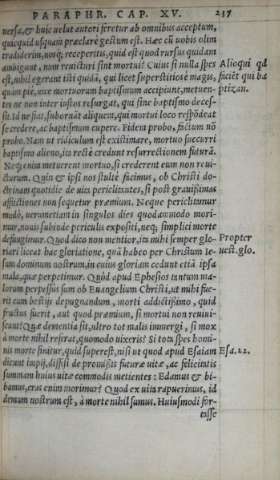 PARAPHR. CAP. XV. 237
nersa, & huic uelut autori feretur ab omnibus acceptum,
quicquid usquam præclare gestum est. Hæc cũ uobis olim
tradiderim, uosq; receperitis, quid est quod rursus quidam
ambigant, non reuicturi sint mortui? Cui si nulla spes
est, nihil egerunt isti quidã, qui licet superstitiose magis,
quam pie, uice mortuorum baptismum accipiunt, metuen-
tes ne non inter iustos resurgat, qui sine baptismo deces-
sit. Id ne fiat, subornãt aliquem, qui mortui loco respõdeat
se credere, ac baptismum cupere. Fidem probo, factum nõ
probo. Nam ut ridiculum est existimare, mortuo succurri
baptismo alieno, ita recte credunt resurrectionem futurã.
Neq; enim metuerent mortuo, si crederent eum non reui-
cturum. Quin & ipsi nos stulte facimus, ob Christi do-
ctrinam quotidie de uita periclitantes, si post grauissimas
afflictiones non sequetur præmium. Neque periclitamur
modò, uerumetiam in singulos dies quodammodo mori-
mur, nouis subinde periculis expositi, neq; simplici morte
defungimur. Quod dico non mentior, ita mihi semper glo-
riari liceat hac gloriatione, quã habeo per Christum Ie-
sum dominum nostrum, in cuius gloriam cedunt etiã ipsa
mala, quæ perpetimur. Quid apud Ephesios tantum ma-
lorum perpessus sum ob Euangelium Christi, ut mihi fue-
rit cum bestijs depugnandum, morti addictissimo, quid
fructus fuerit, aut quod præmium, si mortui non reuiui-
scunt? Quæ dementia sit, ultro tot malis immergi, si mox
à morte nihil referat, quomodo uixeris? Si totus spes homi-
nis morte finitur, quid superest, nisi ut quod apud Esaiam
dicunt impij, diffisi de promissis futuræ uitæ, ac felicitatis
summam huius uitæ commodis metientes: Edamus & bi-
bamus, cras enim morimur? Quod ex uita rapuerimus, id
demum nostrum est, à morte nihil sumus. Huiusmodi for-
tasse
Alioqui qd
faciẽt qui ba
ptizan.
Propter
uest. glo.
Esa. 22.